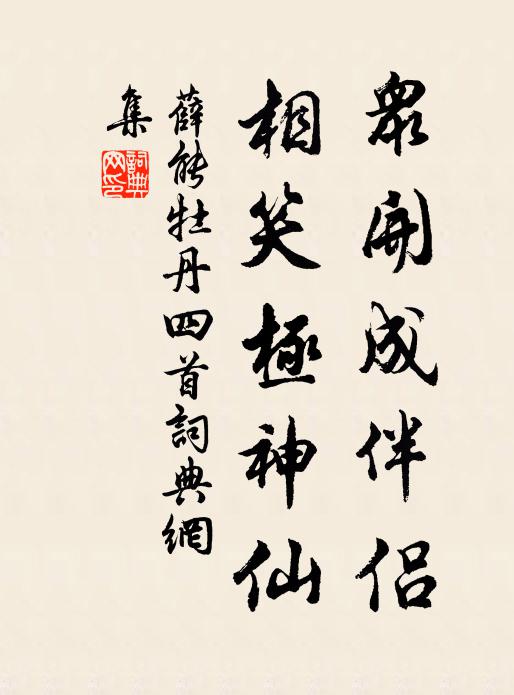 眾開成伴侶
相笑極神仙
薛能牡丹四首詞典網
集
詞典網印